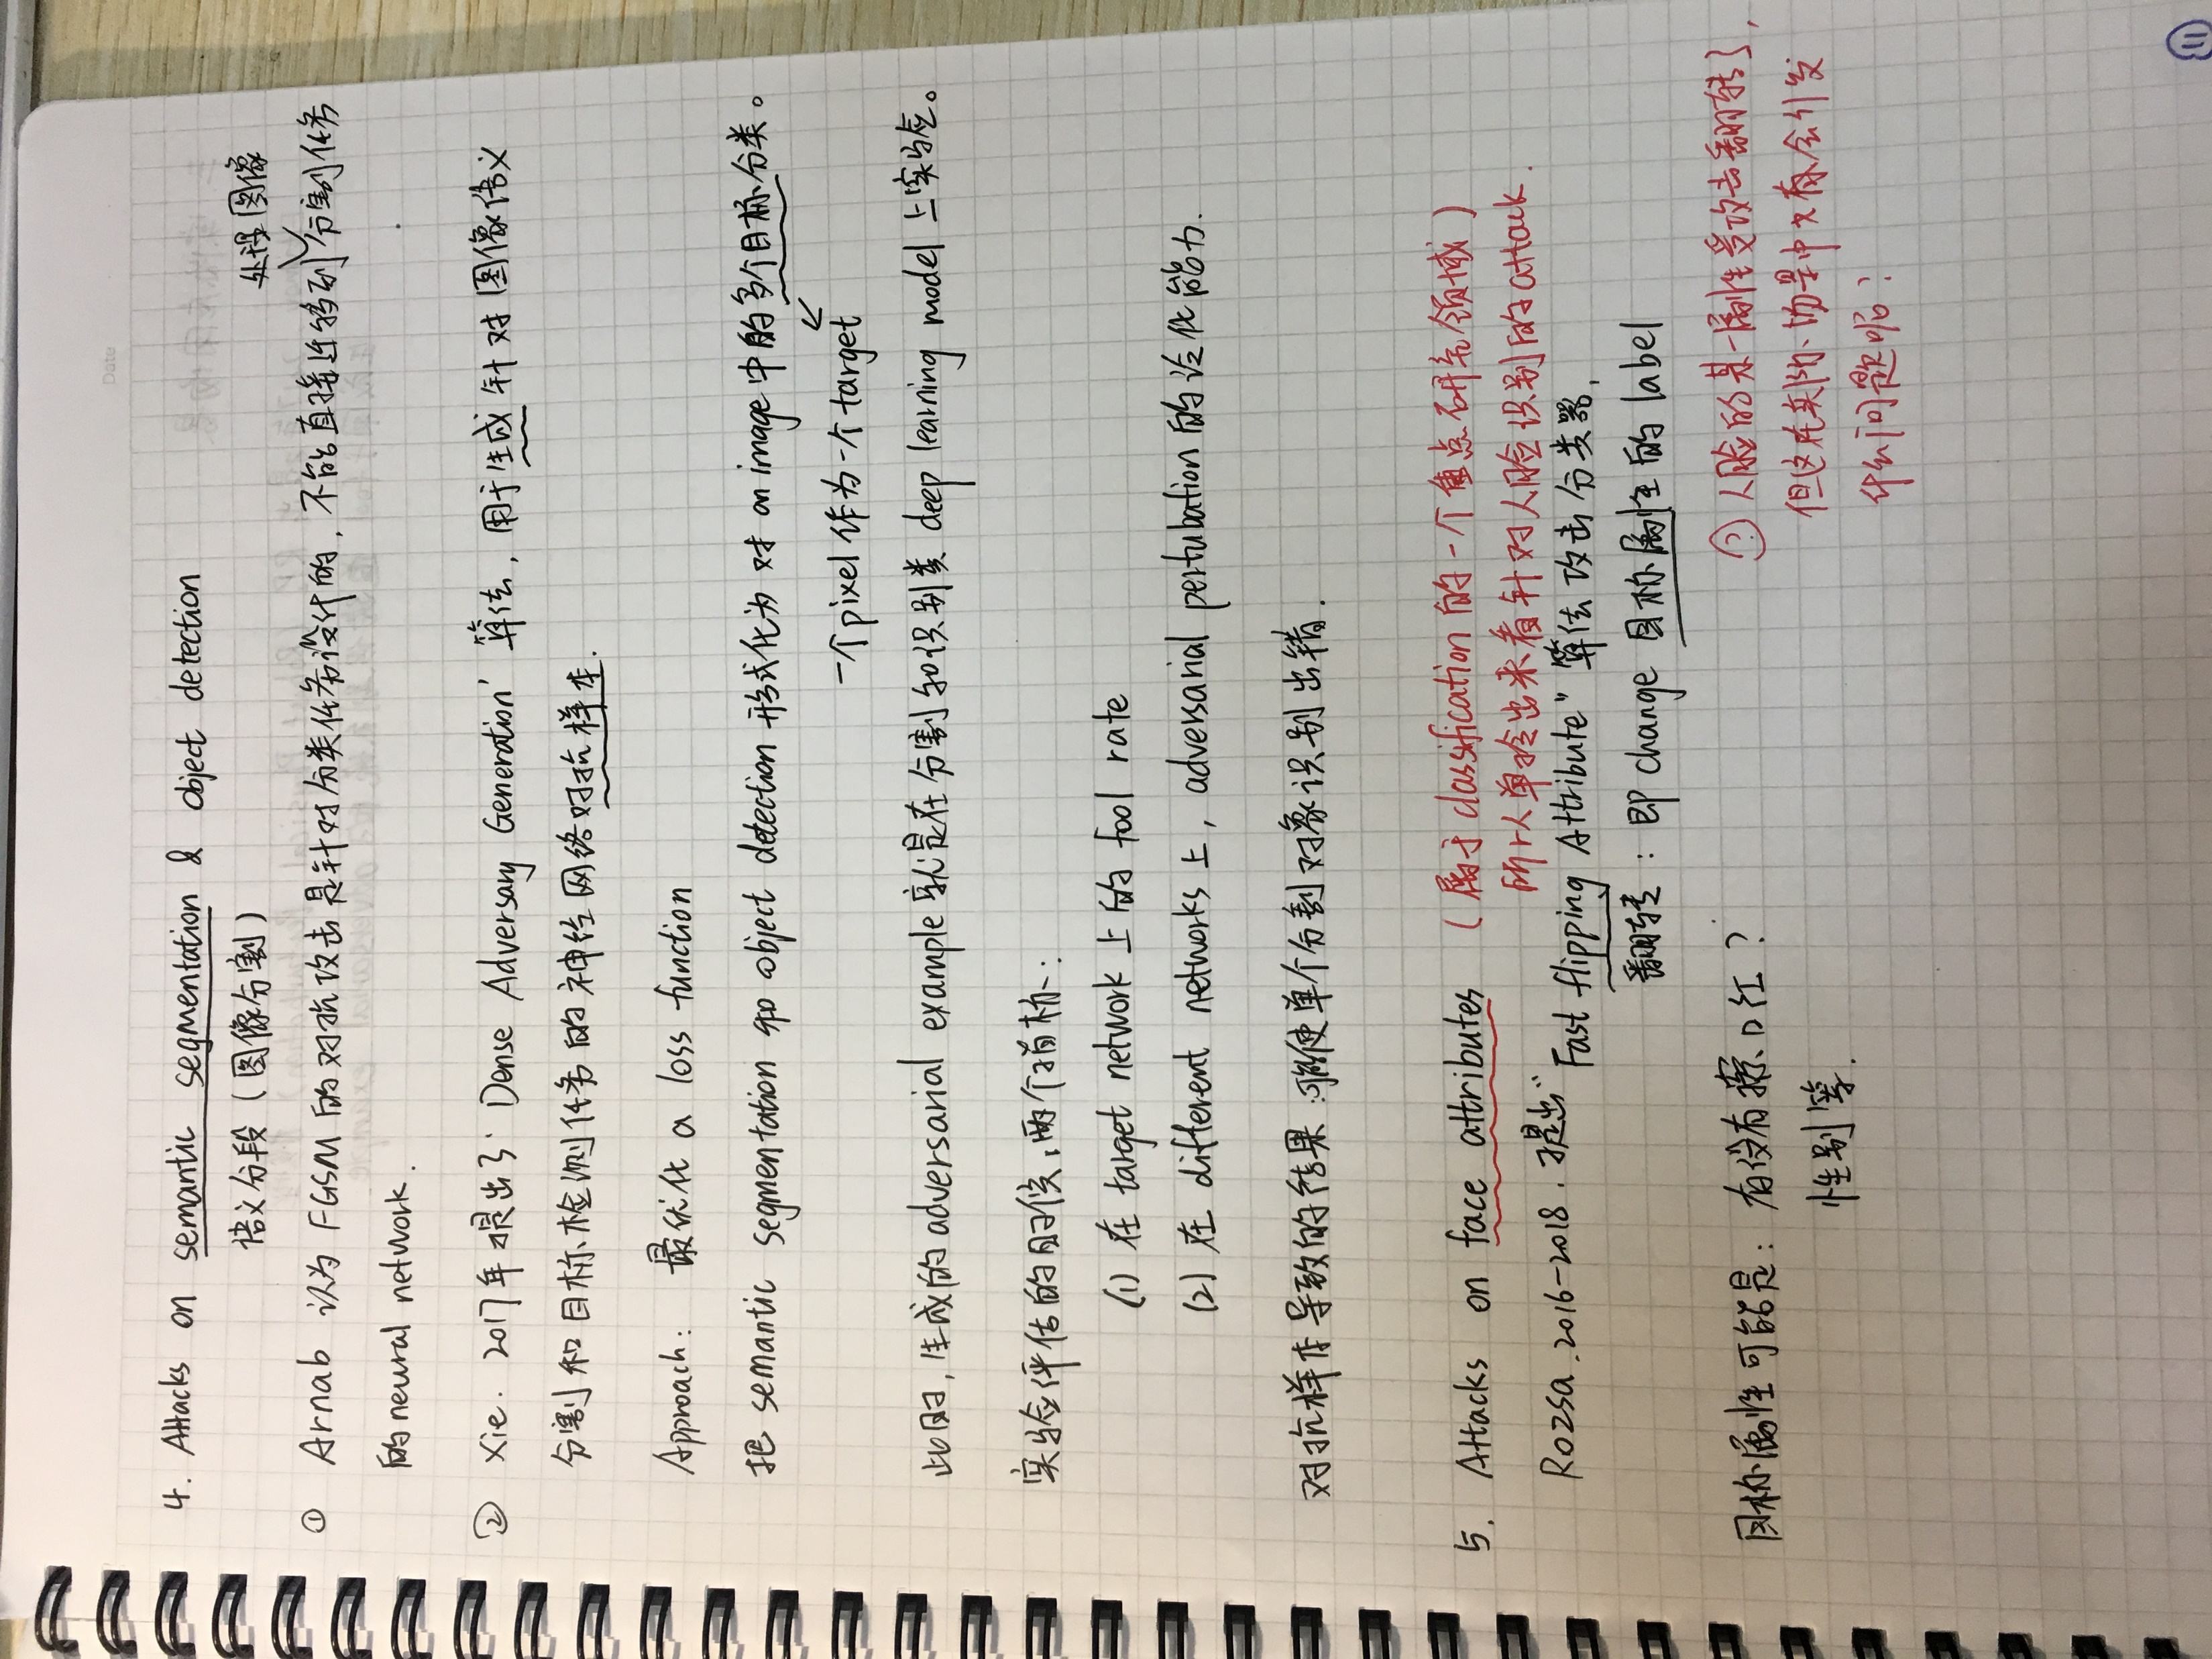 Date
4. Attacks on semantic segmentation & object detection
语义分段（图像分割）
处理图像
① Arnab 认为 FGSM 的对抗攻击是针对分类任务设计的，不能直接迁移到分割任务
的 neural network.
② Xie. 2017年提出了'Dense Adversary Generation'算法，用于生成针对图像语义
分割和目标检测任务的神经网络对抗样本.
Approach: 最优化 a loss function
把 semantic segmentation 和 object detection 形式化为对 an image 中的多个目标分类。
一个pixel作为一个target
此时，生成的 adversarial example 就是在分割和识别类 deep learning model 上实验。
实验评估的时候，两个指标：
(1) 在 target network 上的 fool rate
(2) 在 different networks 上，adversarial pertubation 的泛化能力.
对抗样本导致的结果：可能使单个分割对象识别出错.
5. Attacks on face attributes （属于 classification 的一个焦点研究领域）
所以单拎出来看针对人脸识别的attack.
Rozsa. 2016-2018. 提出"Fast flipping Attribute"算法攻击分类器,
翻转：即 change 目标属性的 label
目标属性可能是：有没有擦口红？
性别等.
? 人脸的某一属性受攻击翻转了，
但这在实际场景中又有会引发
什么问题呢？
11